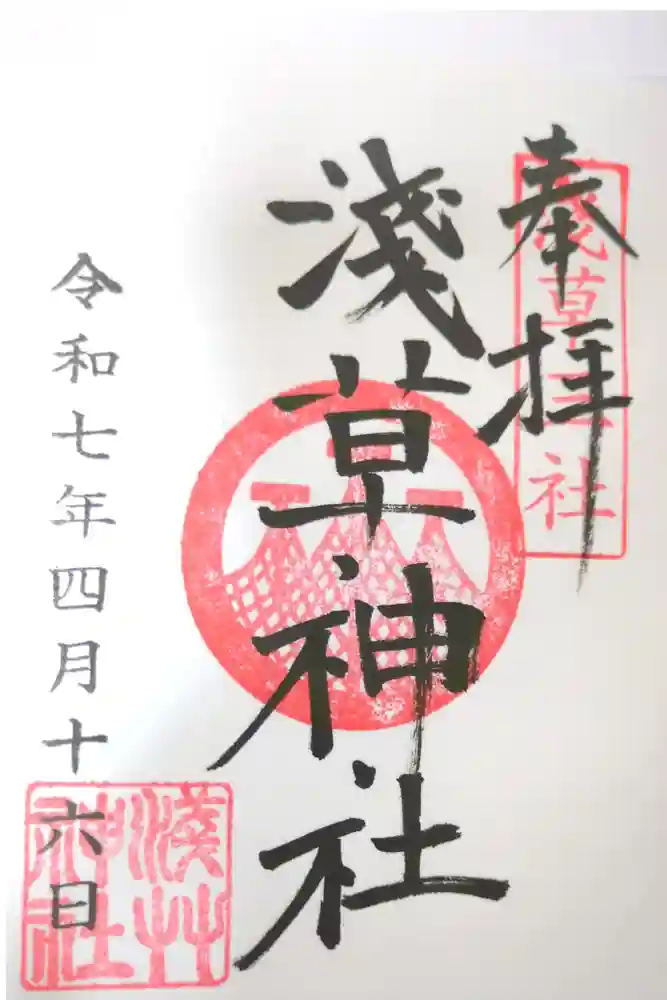 奉拝
浅草三社
淺草神社
令和七年四月十六日
淺草神社